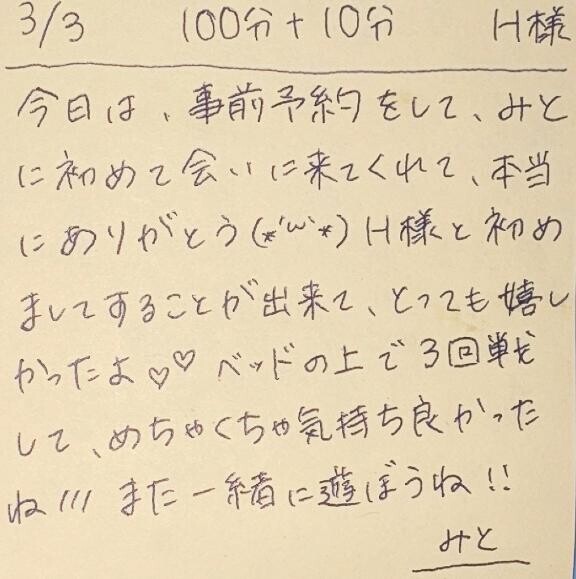 3/3 100分+10分 H様
今日は、事前予約をして、みと
に初めて会いに来てくれて、本当
にありがとう(*'ω'*) H様と初め
ましてすることが出来て、とっても嬉し
かったよ♡♡ ベッドの上で3回戦
して、めちゃくちゃ気持ち良かった
ね!!! また一緒に遊ぼうね!!
みと